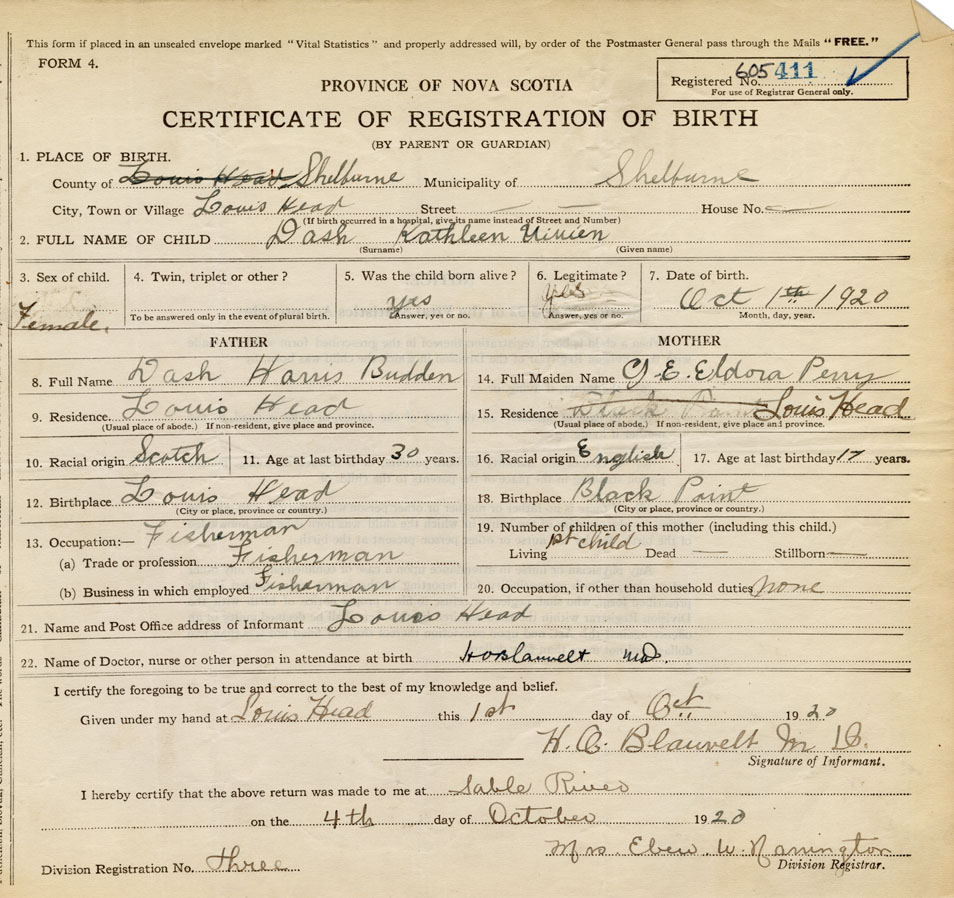 This form if placed in an unsealed envelope marked "Vital Statistics" and properly addressed will, by order of the Postmaster General pass through the Mails "FREE."
FORM 4.
Registered No. 605411
For use of Registrar General only.
PROVINCE OF NOVA SCOTIA
CERTIFICATE OF REGISTRATION OF BIRTH
(BY PARENT OR GUARDIAN)
1. PLACE OF BIRTH.
County of Louis Head Shelburne Municipality of Shelburne
City, Town or Village Louis Head Street — — House No. —
(If birth occurred in a hospital, give its name instead of Street and Number)
2. FULL NAME OF CHILD Dash Kathleen Vivien
(Surname) (Given name)
3. Sex of child. 4. Twin, triplet or other? 5. Was the child born alive? 6. Legitimate? 7. Date of birth.
Female. yes yes Oct 1th 1920
To be answered only in the event of plural birth. Answer, yes or no. Answer, yes or no. Month, day, year.
FATHER MOTHER
8. Full Name Dash Harris Budden 14. Full Maiden Name Eldora Perry
9. Residence. Louis Head 15. Residence Black Point Louis Head
(Usual place of abode.) If non-resident, give place and province. (Usual place of abode.) If non-resident, give place and province.
10. Racial origin Scotch 11. Age at last birthday 30 years. 16. Racial origin English 17. Age at last birthday 17 years.
12. Birthplace Louis Head 18. Birthplace Black Point
(City or place, province or country.) (City or place, province or country.)
13. Occupation:— Fisherman 19. Number of children of this mother (including this child.)
(a) Trade or profession Fisherman Living 1st child Dead — Stillborn —
(b) Business in which employed Fisherman 20. Occupation, if other than household duties none
21. Name and Post Office address of Informant Louis Head
22. Name of Doctor, nurse or other person in attendance at birth HOBlauvelt MD.
I certify the foregoing to be true and correct to the best of my knowledge and belief.
Given under my hand at Louis Head this 1st day of Oct 1920
H. O. Blauvelt M D.
Signature of Informant.
I hereby certify that the above return was made to me at Sable River
on the 4th day of October 1920
Mrs Eben W.
Division Registration No. three Division Registrar.